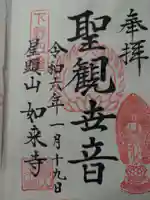 奉拝
聖観世音
令和六年一月十九日
星頭山 如来寺